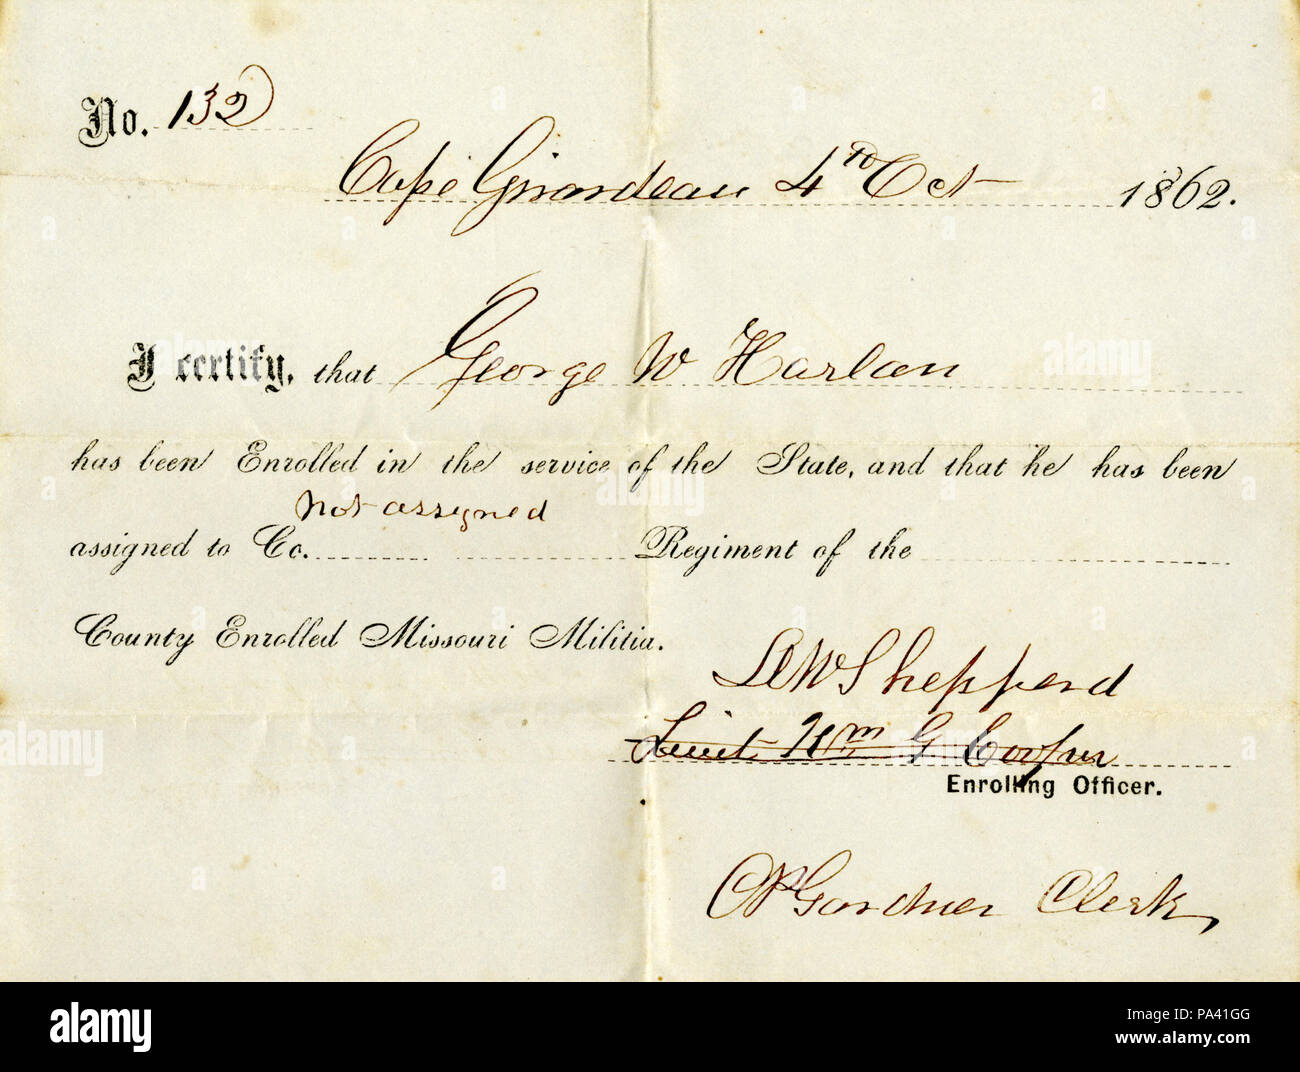 No. 132
Cape Girardeau 4th Oct 1862.
I certify, that George W Harlan
has been Enrolled in the service of the State, and that he has been
not assigned
assigned to Co. Regiment of the
County Enrolled Missouri Militia.
Sheppard
Lieut Wm G Cooper
Enrolling Officer.
CP Gardner Clerk
alamy
Image ID: PA41GG
www.alamy.com